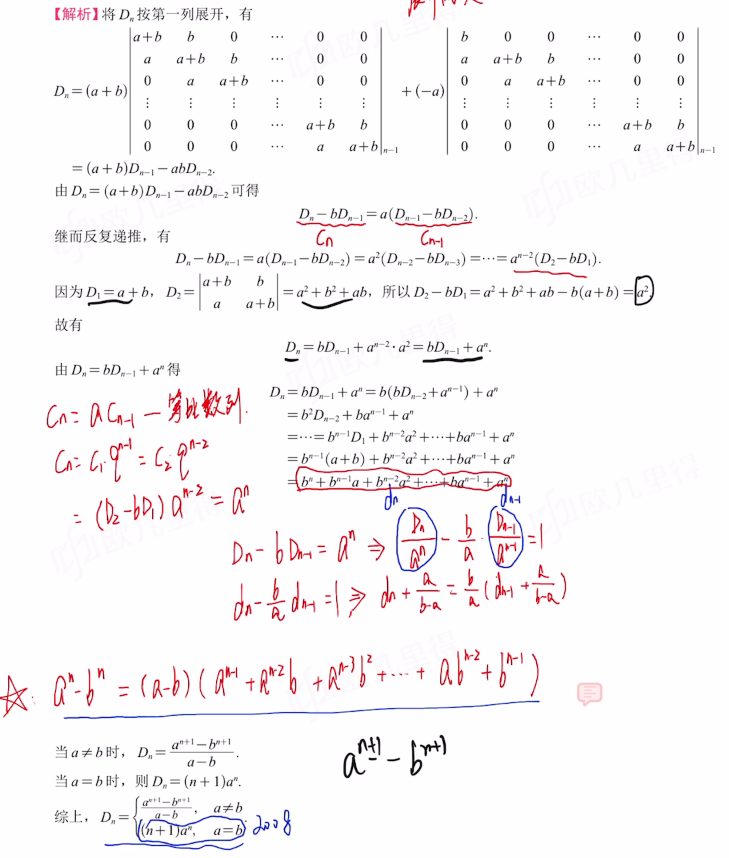 【解析】将 Dₙ 按第一列展开，有
Dₙ = (a+b) | a+b b 0 ⋯ 0 0 | + (−a) | b 0 0 ⋯ 0 0 |
a a+b b ⋯ 0 0   a a+b b ⋯ 0 0
0 a a+b ⋯ 0 0   0 a a+b ⋯ 0 0
⋮ ⋮ ⋮ ⋮ ⋮ ⋮   ⋮ ⋮ ⋮ ⋮ ⋮ ⋮
0 0 0 ⋯ a+b b   0 0 0 ⋯ a+b b
0 0 0 ⋯ a a+b |ₙ₋₁   0 0 0 ⋯ a a+b |ₙ₋₁
= (a+b)Dₙ₋₁ − abDₙ₋₂.
由 Dₙ = (a+b)Dₙ₋₁ − abDₙ₋₂ 可得
Dₙ − bDₙ₋₁ = a(Dₙ₋₁ − bDₙ₋₂).
Cn Cn-1
继而反复递推，有
Dₙ − bDₙ₋₁ = a(Dₙ₋₁ − bDₙ₋₂) = a²(Dₙ₋₂ − bDₙ₋₃) = ⋯ = aⁿ⁻²(D₂ − bD₁).
因为 D₁ = a + b，D₂ = | a+b b ; a a+b | = a² + b² + ab，所以 D₂ − bD₁ = a² + b² + ab − b(a+b) = a²，
故有
Dₙ = bDₙ₋₁ + aⁿ⁻² · a² = bDₙ₋₁ + aⁿ.
由 Dₙ = bDₙ₋₁ + aⁿ 得
Dₙ = bDₙ₋₁ + aⁿ = b(bDₙ₋₂ + aⁿ⁻¹) + aⁿ
= b²Dₙ₋₂ + baⁿ⁻¹ + aⁿ
= ⋯ = bⁿ⁻¹D₁ + bⁿ⁻²a² + ⋯ + baⁿ⁻¹ + aⁿ
= bⁿ⁻¹(a+b) + bⁿ⁻²a² + ⋯ + baⁿ⁻¹ + aⁿ
= bⁿ + bⁿ⁻¹a + bⁿ⁻²a² + ⋯ + baⁿ⁻¹ + aⁿ
Cn = a Cn-1 — 等比数列.
Cn = C₁·qⁿ⁻¹ = C₂·qⁿ⁻²
= (D₂−bD₁)aⁿ⁻² = aⁿ
dn dn-1
Dn − bDn-1 = aⁿ ⇒ Dn/aⁿ − b/a · Dn-1/aⁿ⁻¹ = 1
dn − b/a dn-1 = 1 ⇒ dn + a/(b−a) = b/a (dn-1 + a/(b−a))
☆: aⁿ − bⁿ = (a−b)(aⁿ⁻¹ + aⁿ⁻²b + aⁿ⁻³b² + ⋯ + abⁿ⁻² + bⁿ⁻¹)
当 a ≠ b 时，Dₙ = (aⁿ⁺¹ − bⁿ⁺¹)/(a − b).
aⁿ⁺¹ − bⁿ⁺¹
当 a = b 时，则 Dₙ = (n+1)aⁿ.
综上，Dₙ = { (aⁿ⁺¹ − bⁿ⁺¹)/(a − b), a ≠ b
(n+1)aⁿ, a = b. 2008